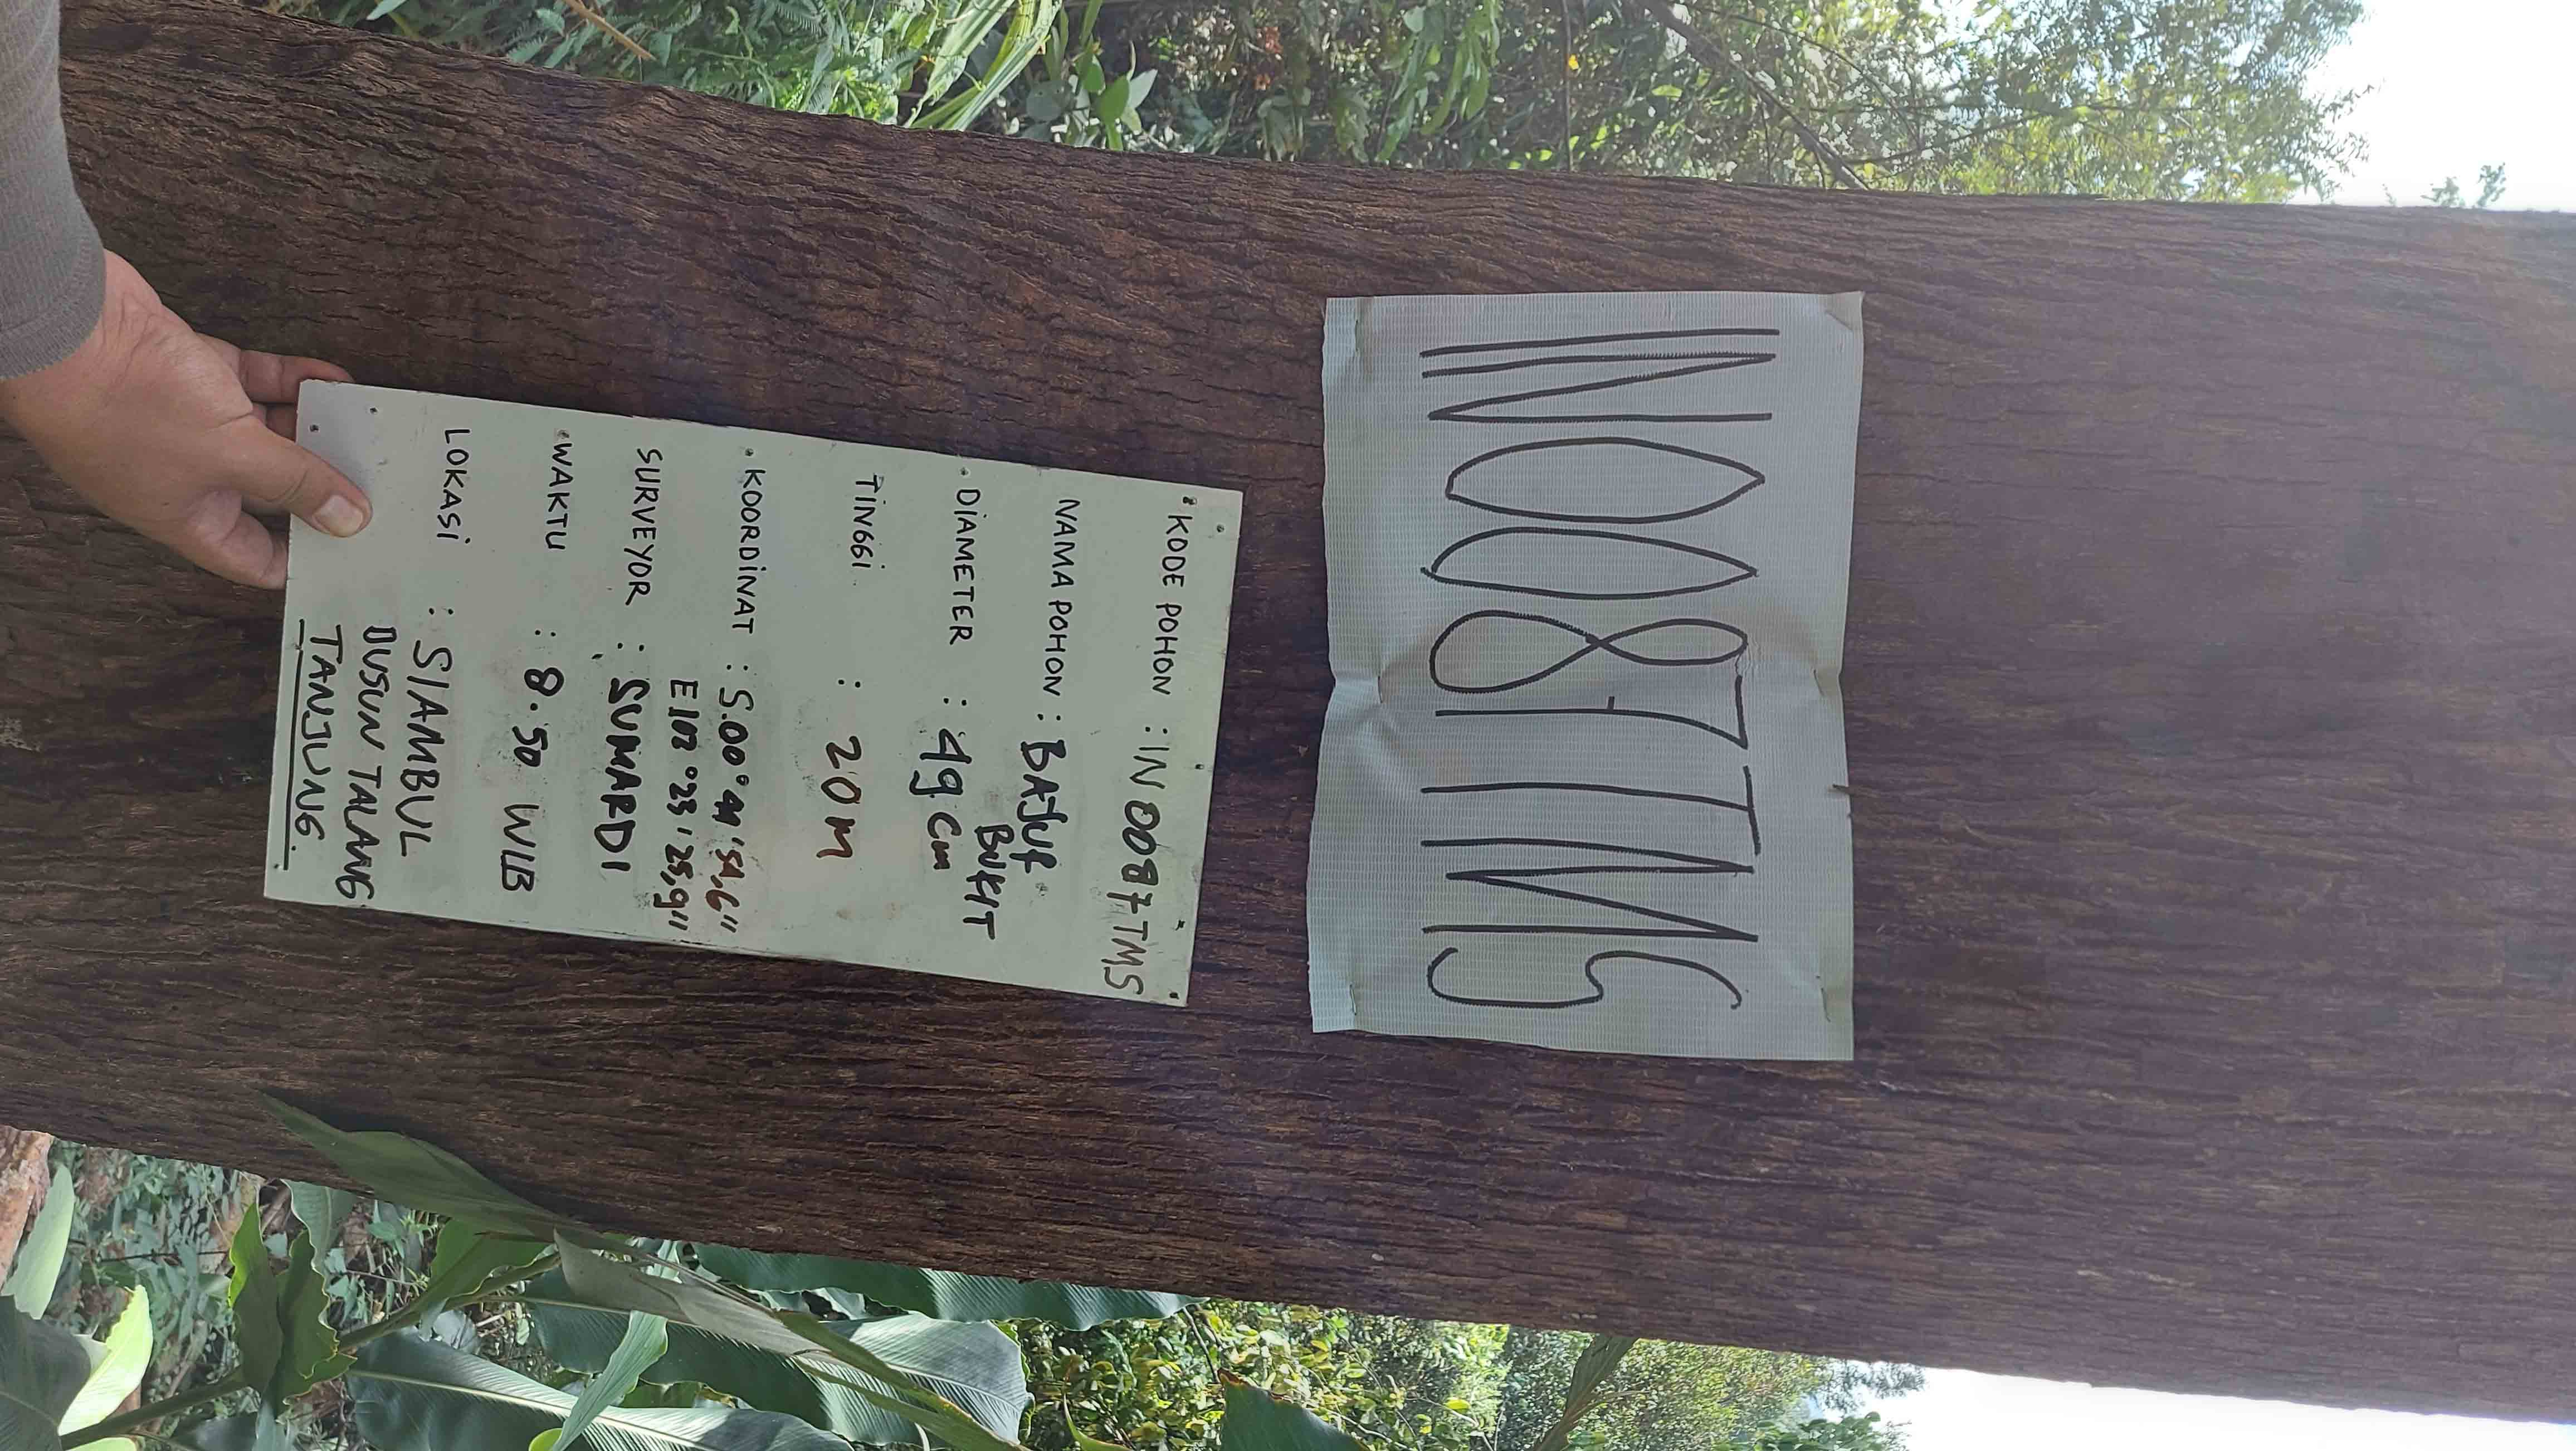 IN0087TMS
KODE POHON : IN 0087TMS
NAMA POHON : BAJUR
BUKIT
DIAMETER : 49 Cm
TINGGI : 20 M
KOORDINAT : S.00° 44' 54,6"
E 102° 23' 25,9"
SURVEYOR : SUMARDI
WAKTU : 8.50 WIB
LOKASI : SIAMBUL
DUSUN TALANG
TANJUNG.